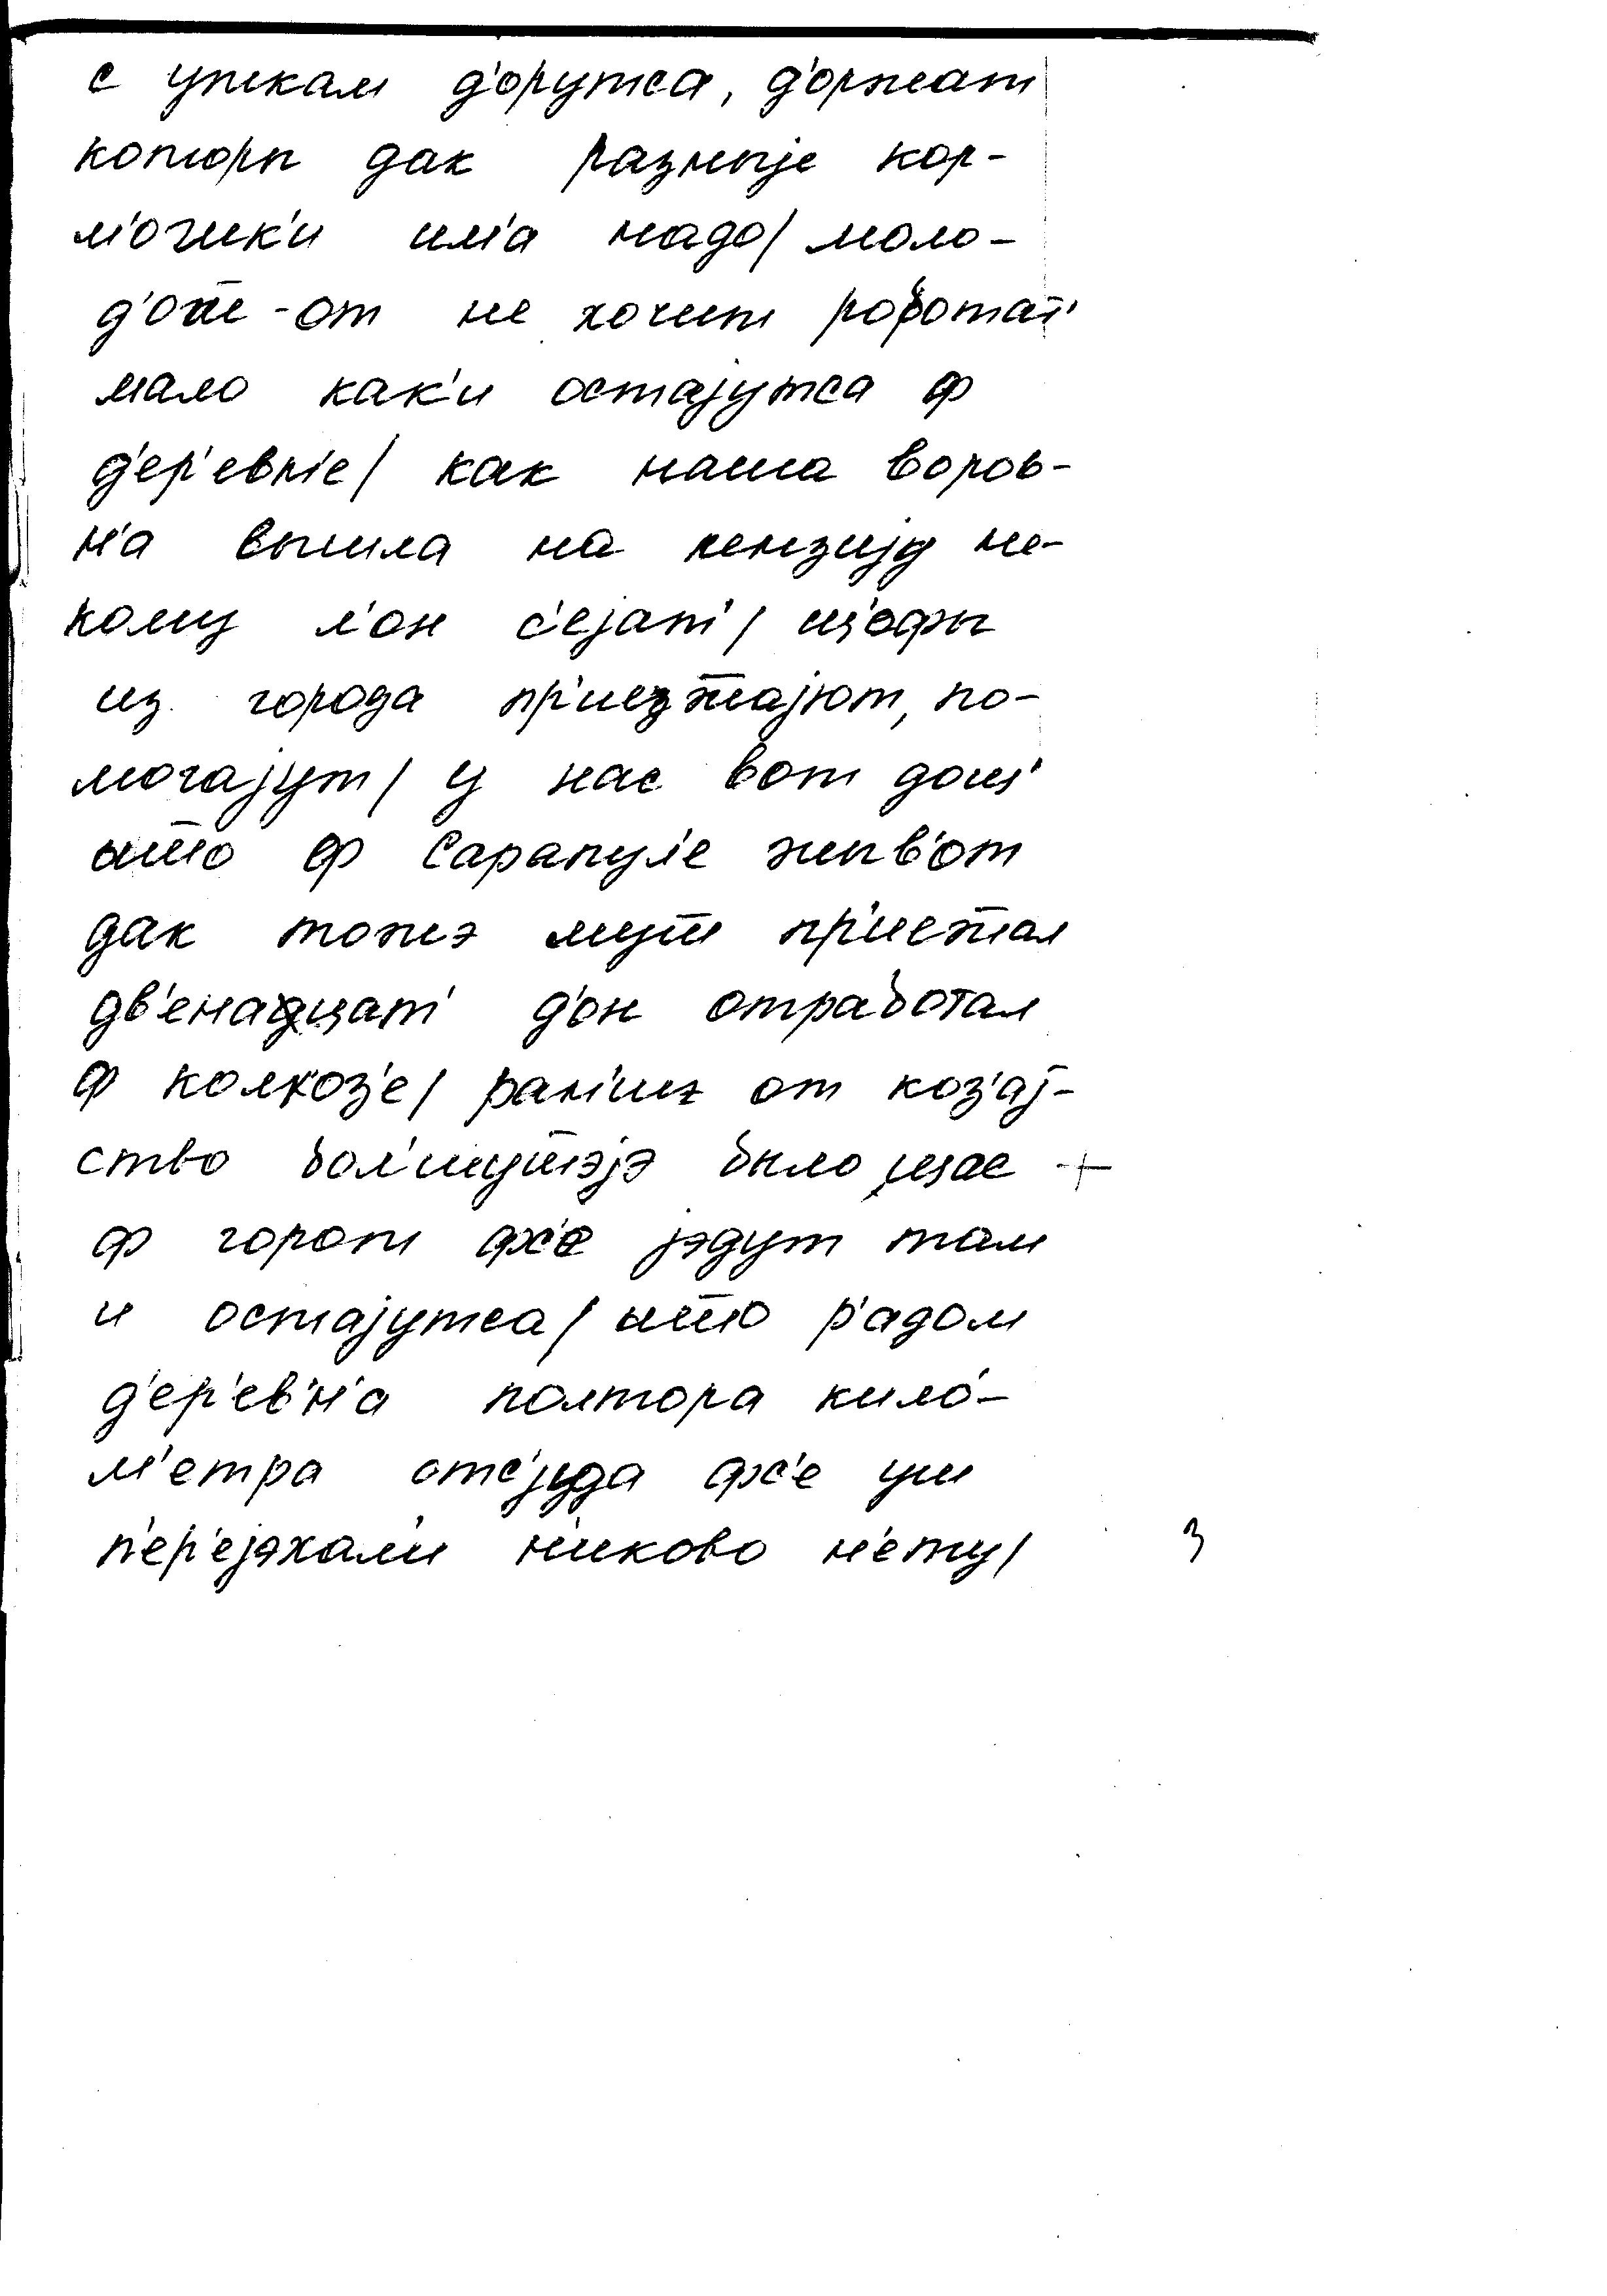 с ушкам д'орутса, д'оржат
которы дак разныjе кор-
м'ошк'и им'а надо/ моло-
д'ож̄-от не хочит роботат'
мало как'и остаjутса ф
д'ер'евн'е/ как наша воров-
н'а вышла на пензиjу не-
кому л'он с'еjат'/ ш'офы
из города пр'иезж̄аjют, по-
могаjут/ у нас вот доч'
што ф Сарапул'е жыв'от
дак тожэ муш̄ пр'иеж̄ал
дв'енадцат' д'он отработал
ф колхоз'е/ ран'шэ от хоз'аj-
ство бол'шуш̄эjэ было щас +
ф горот фс'е jэдут там
и остаjутса/ што р'адом
д'ер'ев'н'а полтора кило-
м'етра отс'jуда фс'е уш
п'ер'еjэхал'и н'иково н'ету/
3